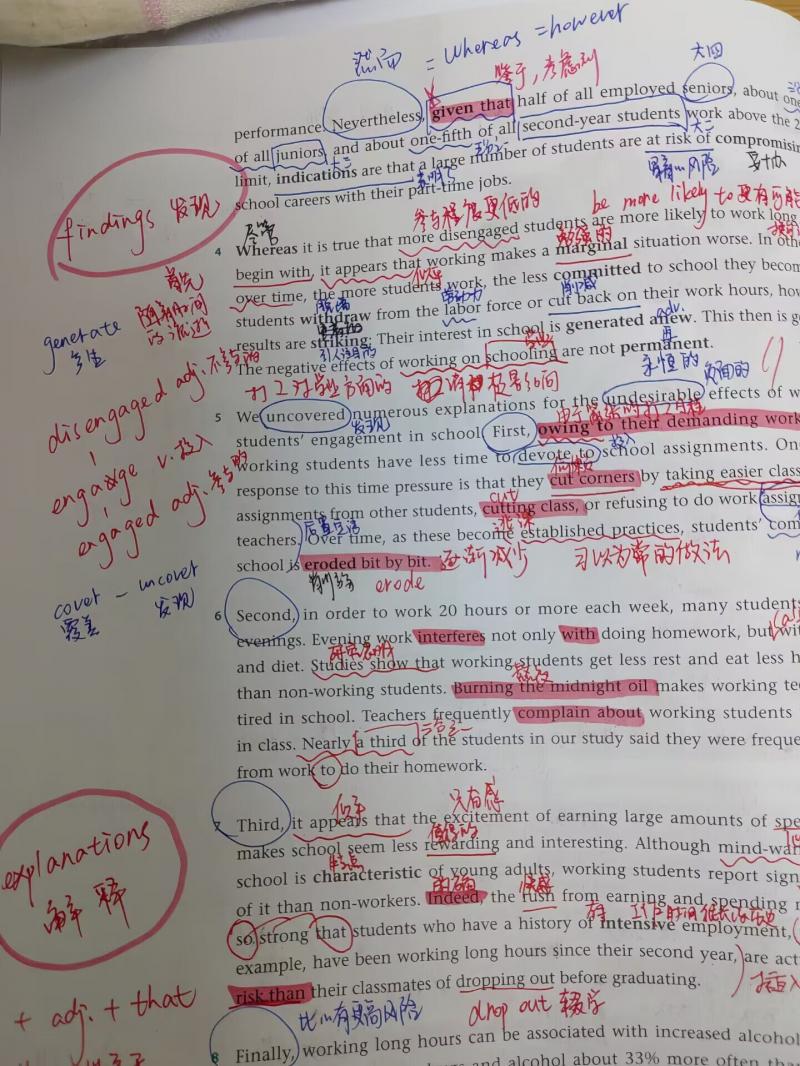 然而 = whereas = however
鉴于,考虑到
大四
performance. Nevertheless, given that half of all employed seniors, about one
of all juniors, and about one-fifth of all second-year students work above the 2
大三
大二
limit, indications are that a large number of students are at risk of compromisin
school careers with their part-time jobs.
findings 发现
参与程度更低的
be more likely to 更有可能
尽管
勉强的
4 Whereas it is true that more disengaged students are more likely to work long
begin with, it appears that working makes a marginal situation worse. In othe
首先
随着时间的流逝
似乎
over time, the more students work, the less committed to school they becom
劳动力
削减
students withdraw from the labor force or cut back on their work hours, how
generate 产生
引人注目的
adv. 再
results are striking: Their interest in school is generated anew. This then is go
学业
永恒的
The negative effects of working on schooling are not permanent.
disengaged adj. 不参与的
engage v. 投入
engaged adj. 参与的
负面的
5 We uncovered numerous explanations for the undesirable effects of w
发现
students' engagement in school. First, owing to their demanding work
投入
working students have less time to devote to school assignments. One
response to this time pressure is that they cut corners by taking easier class
cut
assignments from other students, cutting class, or refusing to do work assign
逃课
teachers. Over time, as these become established practices, students' com
school is eroded bit by bit. 逐渐减少
习以为常的做法
erode
cover - uncover
覆盖 发现
6 Second, in order to work 20 hours or more each week, many students
evenings. Evening work interferes not only with doing homework, but wit
研究表明
and diet. Studies show that working students get less rest and eat less h
熬夜
than non-working students. Burning the midnight oil makes working tee
tired in school. Teachers frequently complain about working students
三分之一
in class. Nearly a third of the students in our study said they were freque
from work to do their homework.
似乎
7 Third, it appears that the excitement of earning large amounts of spe
值得的
makes school seem less rewarding and interesting. Although mind-wan
explanations 解释
特点
school is characteristic of young adults, working students report sign
的确
快感
of it than non-workers. Indeed, the rush from earning and spending m
so strong that students who have a history of intensive employment,
example, have been working long hours since their second year, are act
插入
risk than their classmates of dropping out before graduating.
+ adj. + that
比⋯有更高风险
drop out 辍学
8 Finally, working long hours can be associated with increased alcohol
and alcohol about 33% more often tha